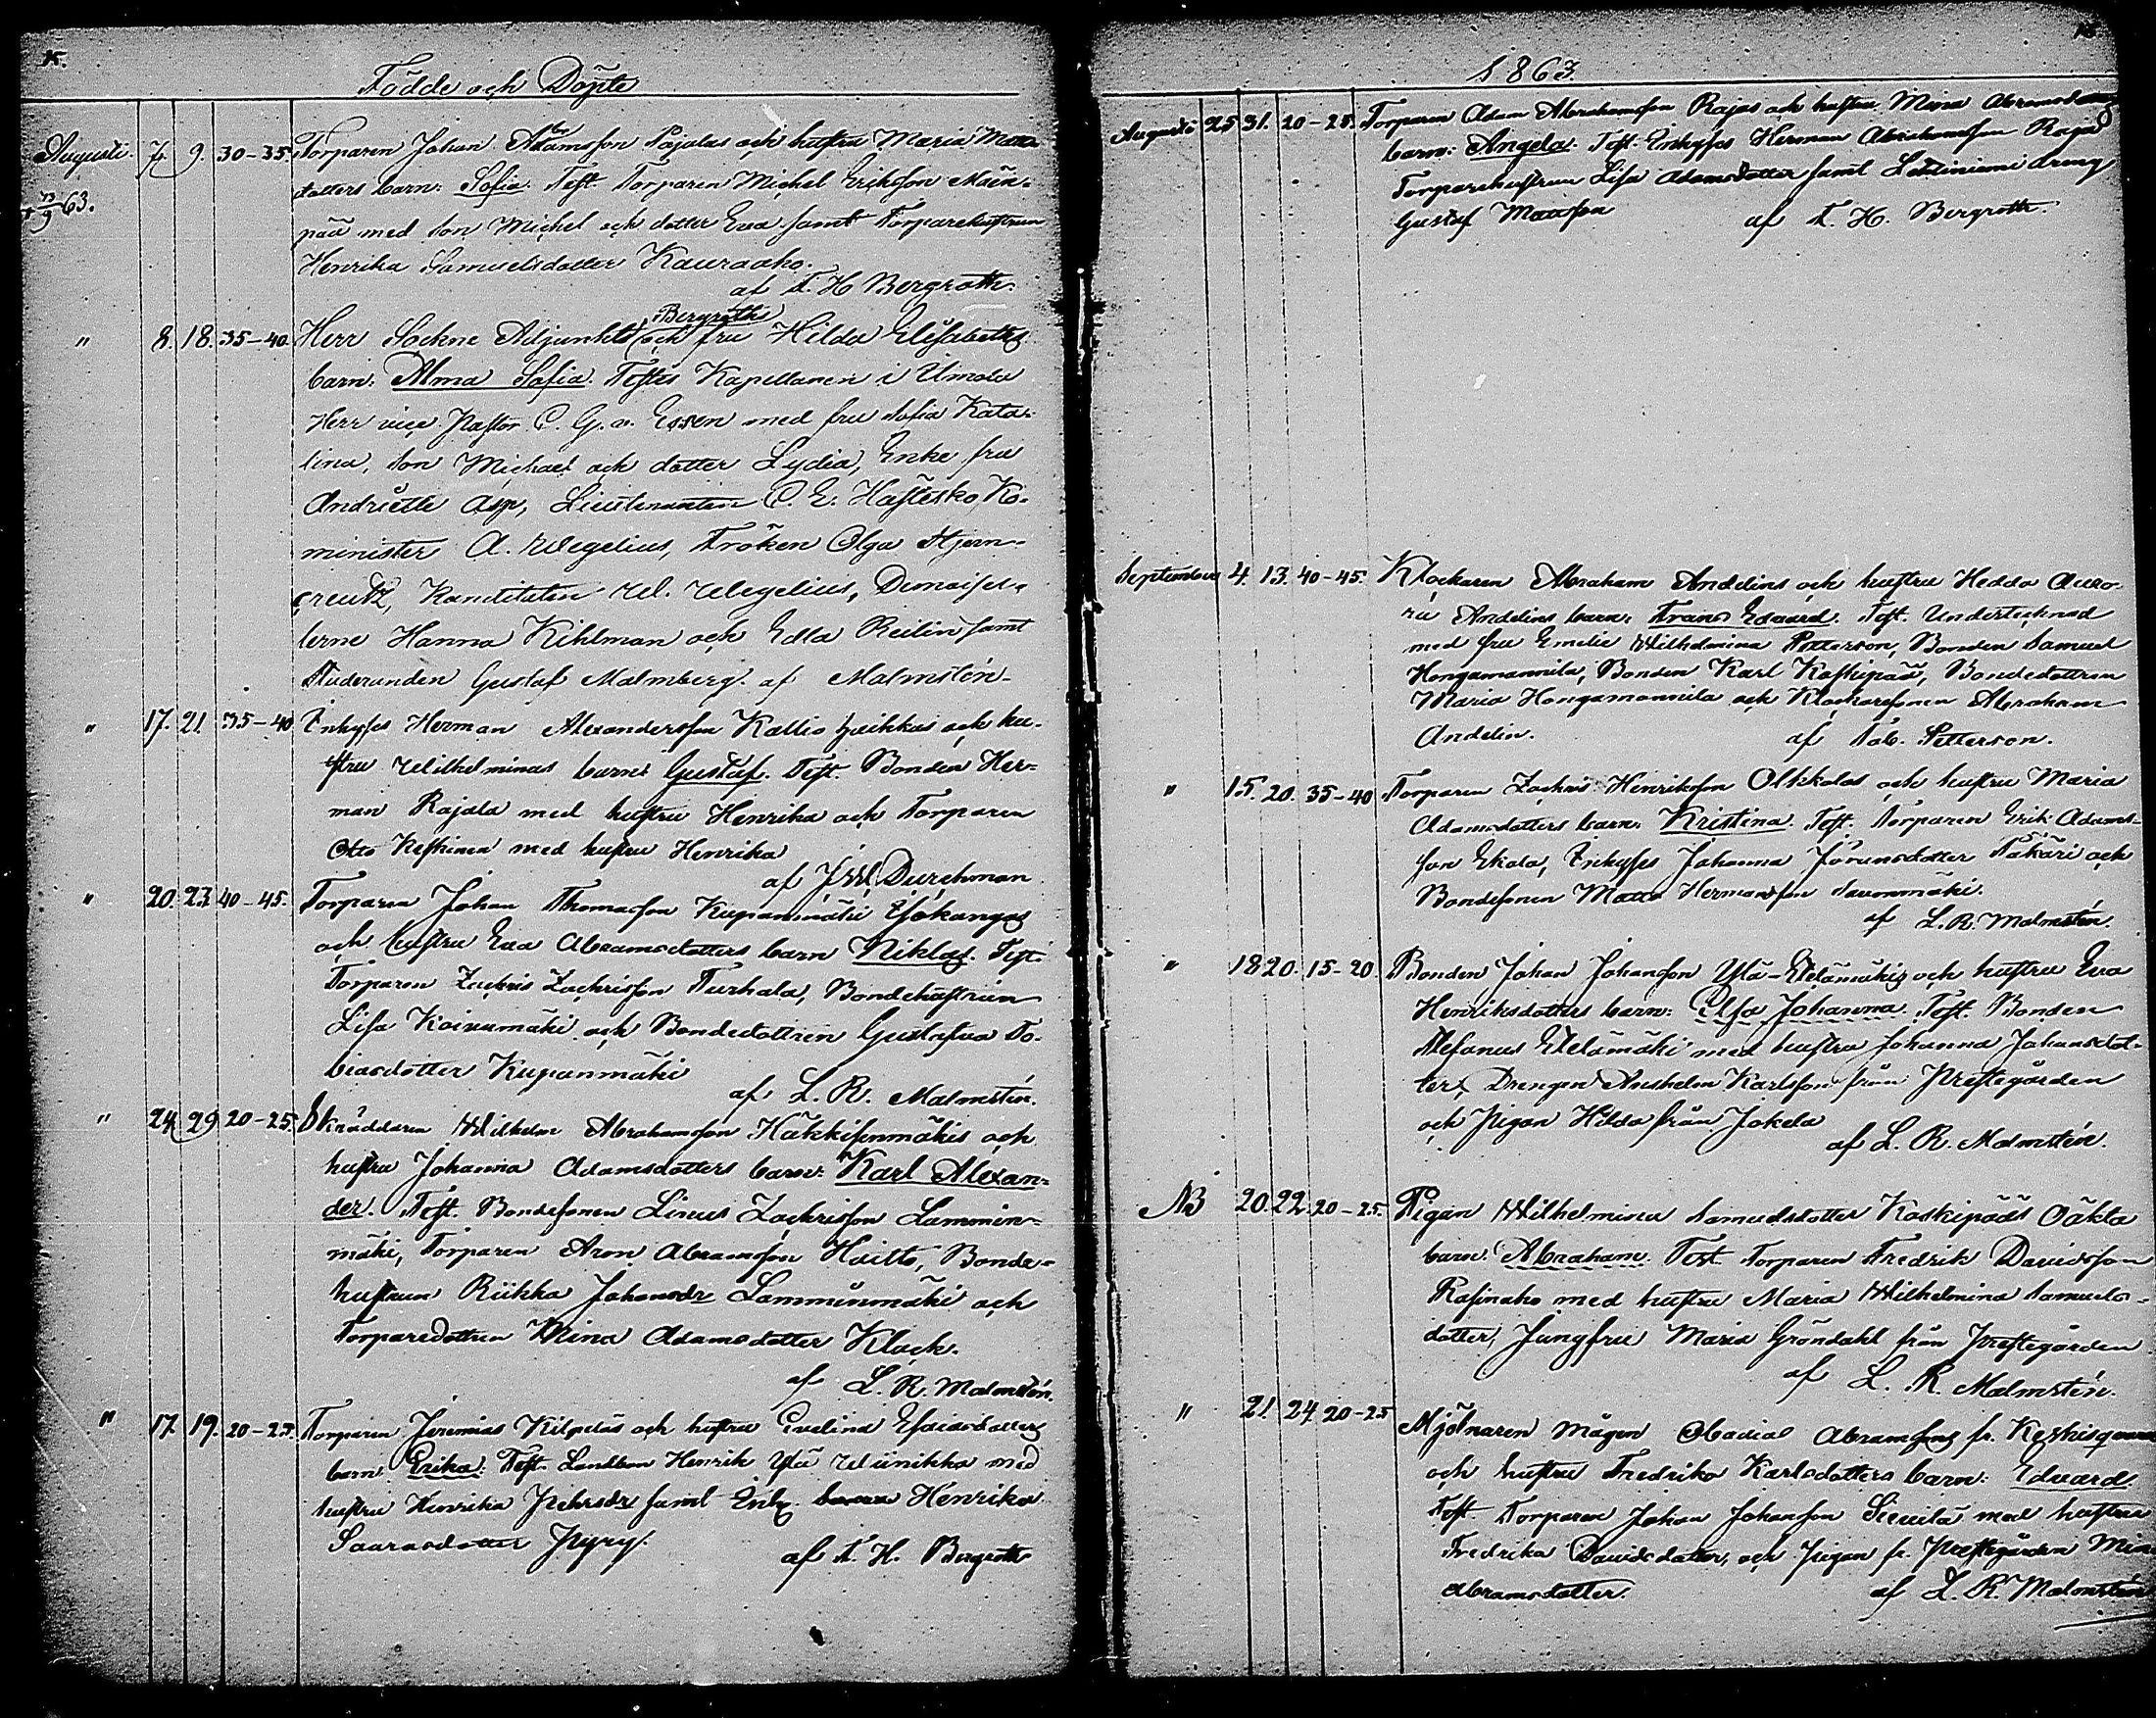 15.
Födde och Döpte
Augusti. 7. 9. 30-35. Torparen Johan Adamsson Pajalas och hustru Maria Matts
dotters barn: Sofia. Test. Torparen Michel Eriksson Mäen-
+ 13/9 63.
pää med son Michel och dotter Eva samt Torparehustrun
Henrika Samuelsdotter Kauraaho.
af A. H. Bergroth.
" 8. 18. 35-40. Herr Sockne Adjunkt Bergroths och fru Hilda Elisabeths
barn: Alma Sofia. Testes Kapellanen i Umola
Herr vice Pastor C. G. v. Essen med fru Sofia Kata-
rina, son Michael och dotter Lydia, Enke fru
Andriette Asp, Lieutenanten C. E. Hästesko Ko-
minister A. Wegelius, Fröken Olga Hjern-
creutz, Kanditaten W. Wegelius, Demoisel-
lerne Hanna Kihlman och Edla Reilin samt
Studeranden Gustaf Malmberg. af Malmstén.
" 17. 21. 35-40 Inhyses Herman Alexandersson Kallio och hu-
stru Wilhelminas barn: Gustaf. Test. Bonden Her-
man Rajala med hustru Henrika och Torparen
Otto Keskinen med hustru Henrika
af Durchman
" 20. 23. 40-45. Torparen Johan Thomasson Kupanmäki Isokangas
och hustru Eva Abramsdotters barn Niklas. Test.
Torparen Zachris Zachrisson Turhala, Bondehustrun
Lisa Koivumäki och Bondedottren Gustafva To-
biasdotter Kupanmäki
af L. R. Malmstén.
" 24. 29. 20-25. Skräddaren Wilhelm Abrahamsson Häkkisenmäkis och
hustru Johanna Adamsdotters barn: Karl Alexan-
der. Test. Bondesonen Linus Zachrisson Lammin-
mäki, Torparen Aron Abramsson Huitto, Bonde-
hustrun Riikka Johansdr Lamminmäki och
Torparedottren Mina Adamsdotter Klock.
af L. R. Malmstén.
" 17. 19. 20-25. Torparen Jeremias Kilpeläs och hustru Evelina Esaiædotters
barn Erika. Test. Landbon Henrik Ylä Wiinikka med
hustru Henrika Pehrsdr samt Enk. Henrika
Saarasdotter Pyry.
af A. H. Bergroth
15
1863.
Augusti 25 31. 20-25. Torparen Adam Abrahamsson Rajas och hustru Mina Abramsd
barn: Angela. Test. Inhyses Herman Abrahamsson Raja
Torparehustrun Lisa Adamsdotter samt dreng
Gustaf Mattsson af A. H. Bergroth.
September 4. 13. 40-45. Klockaren Abraham Andelins och hustru Hedda Auro-
ra Andelins barn: Frans Edvard. Test. Undertecknad
med fru Emelie Wilhelmina Petterson, Bonden Samuel
Hongamannila, Bonden Karl Koskipää, Bondedottren
Maria Hongamannila och Klockaresonen Abraham
Andelin. af Sab. Petterson.
" 15. 20. 35-40 Torparen Zachris Henriksson Olkkolas och hustru Maria
Adamsdotters barn: Kristina. Test. Torparen Erik Adams-
son Ekola, Inhyses Johanna Jöransdotter Takäri och
Bondesonen Matts Hermansson Savonmäki.
af L. R. Malmstén.
" 18 20. 15-20. Bonden Johan Johansson Ylä-Etelämäkis och hustru Eva
Henriksdotters barn: Elsa Johanna. Test. Bonden
Stefanus Etelämäki med hustru Johanna Johansdot-
ter, Drengen Anshelm Karlsson från Prestegården
och Pigan Hilda från Jokela
af L. R. Malmstén.
NB 20. 22. 20-25. Pigan Wilhelmina Samuelsdotter Koskipääs Oäkta
barn: Abraham. Test. Torparen Fredrik Davidsson
Rasinaho med hustru Maria Wilhelmina Samuels-
dotter, Jungfru Maria Gröndahl från Prestegården
af L. R. Malmstén.
" 21. 24. 20-25 Mjölnaren Mågen Obadias Abramsons fr.
och hustru Fredrika Karlsdotters barn: Edvard.
Test. Torparen Johan Johansson Siirilä med hustru
Fredrika Davidsdotter, och Pigan fr. Prestegården Mina
Abramsdotter. af L. R. Malmstén